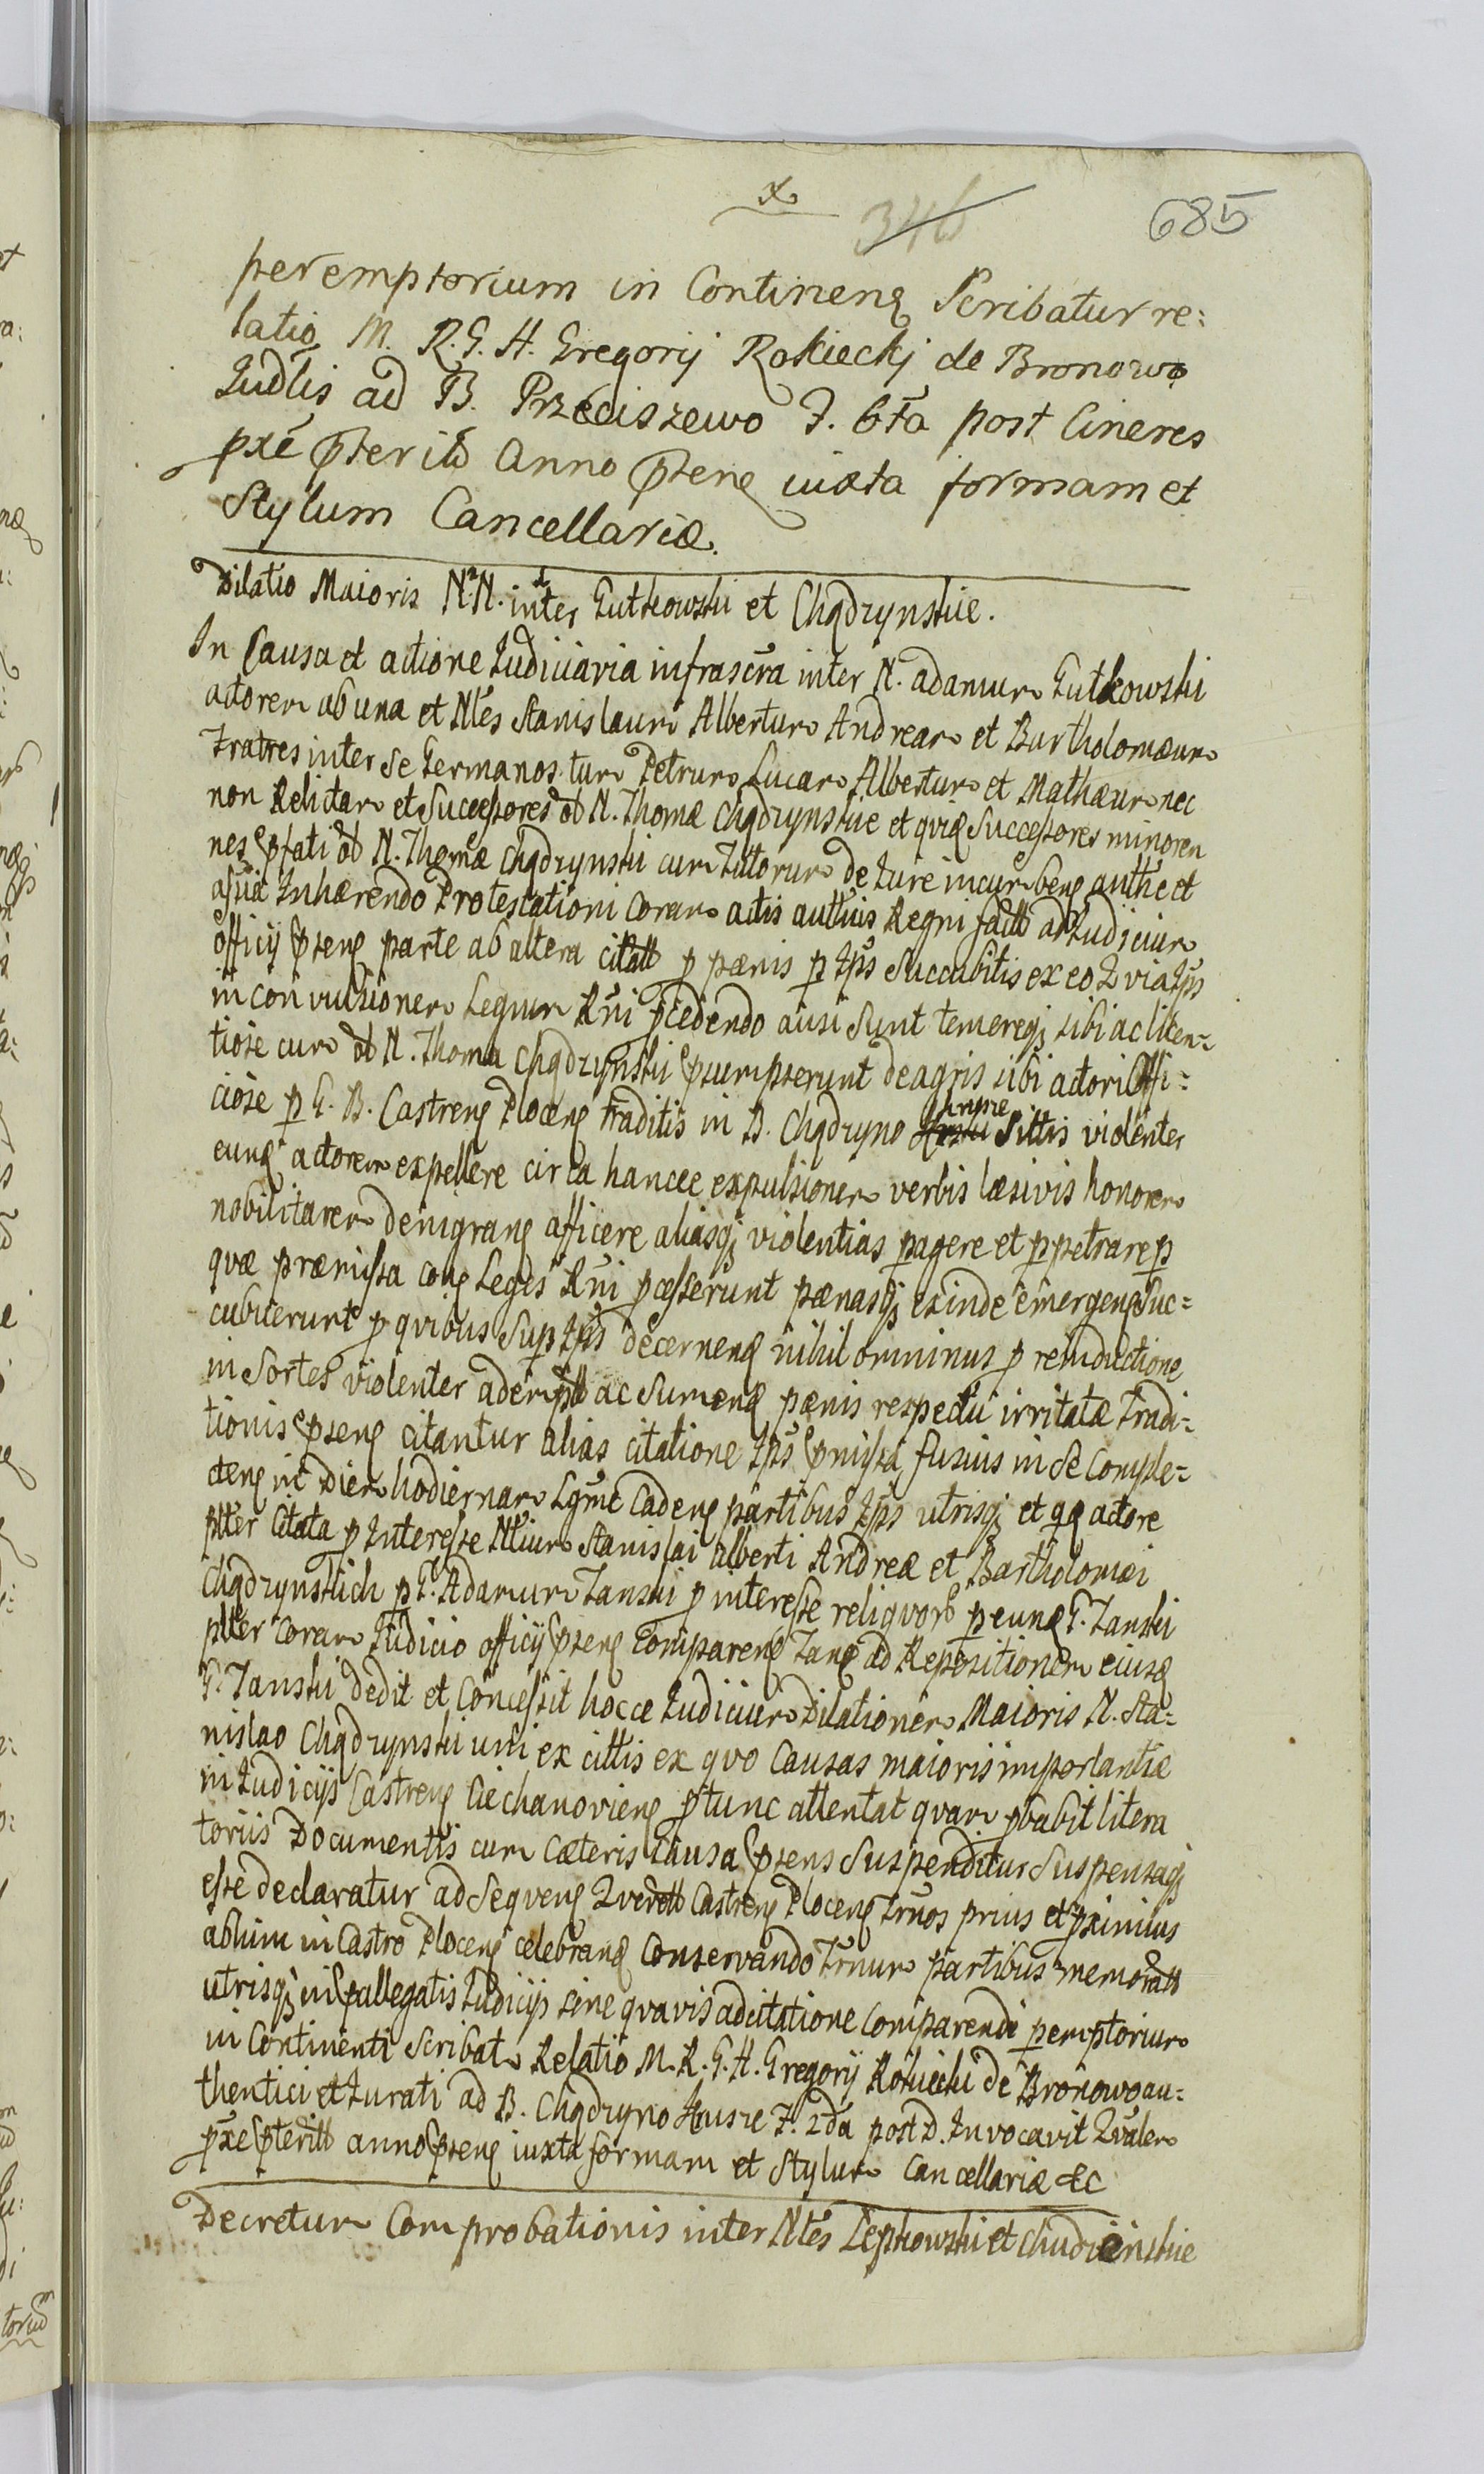 346
685
peremptorium in Contineng Scribatur re:
latio M. R. G. H. Gregorij Rokieckj de Bronowo
Judlis ad B. Przeciszewo F. 6ta post Cineres
pxe pterito Anno pteng iuxta formam et
Stylum Cancellariæ.
Dilatio Maioris N. N. inter Gutkowski et Chądzynskie.
In Causa et actione Judiciaria infrascra inter N. Adamum Gutkowski
actorem ab una et Nles Stanislaum Albertum Andream et Bartholomæum
Fratres inter se Germanos tum Petrum Lucam Albertum et Mathæum nec
non Relictam et Successores ol N. Thomæ Chądzynskie et qvis Successores minoren
nes pfati ol N. Thomæ Chądzynski cum Tutorum de Jure incumbeng authe et
assia Inhærendo Protestationi Coram actis authuis Regni factæ ad Judicium
officij pseng parte ab altera citatt p pænis p Jps Succubitis ex eo Qvia Jps
in convulsionem Legum Rni pcedendo ausi Sunt temereqz sibi ac licen=
tiose cum ol N. Thoma Chądzynski psumpserunt de agris sibi actori Offi=
ciose p G. B. Castreng Ploceng traditis in B. Chądzyno Kruszę Sittis violenter
eunq actorem expellere circa hancce expulsionem verbis læsivis honorem
nobilitarem denigrang afficere aliasqz violentias pagere et ppetrare p
qvæ præmissa cong Leges Rni pcesserunt pænasqz exinde emergeng Suc=
cubuerunt p qvibus Sup Jps decerneng nihilominus p reinductione
in Sortes violenter ademptt ac Sumeng pænis respectu irritatæ Tradi=
tionis pseng citantur alias citatione Jps pmissa fusius in Se Comple=
cteng in Diem hodiernam Lgme Cadeng partibus Jps utrisqz et qq actore
plter Citata p Interesse Nlium Stanislai Alberti Andreæ et Bartholomæi
Chądzynskich p G. Adamum Zanski p interesse reliqvorum p eunq G. Zanski
plter Coram Judicio officij pseng Compareng Tanq ad Repositionem eiusq
G. Zanski dedit et Concessit hocce Judicium Dilationem Maioris N. Sta=
nislao Chądzynski uni ex cittis ex qvo Causas maioris importantiæ
in Judicijs Castreng Ciechanovieng ptunc attentat qvam pbabit litera
toriis Documentis cum Cæteris Causa pseng Suspenditur Suspensaqz
esse declaratur ad Seqveng Qverett Castreng Ploceng Trnos prius et pximius
abhinc in Castro Ploceng celebrang Conservando Trnum partibus memoratt
utrisqz in pallegatis Judicijs sine qvavis adcitatione Comparendi pemptorium
in Continenti Scribat Relatio M. R. G. H. Gregorij Rokiecki de Bronowo au=
thentici et Jurati ad B. Chądzyno Krusze F. 2da post D. Invocavit Qvalem
pxe pteritt anno pseng iuxta formam et Stylum Cancellariæ &c
Decretum Comprobationis inter Nles Lepkowski et Chudzinskie